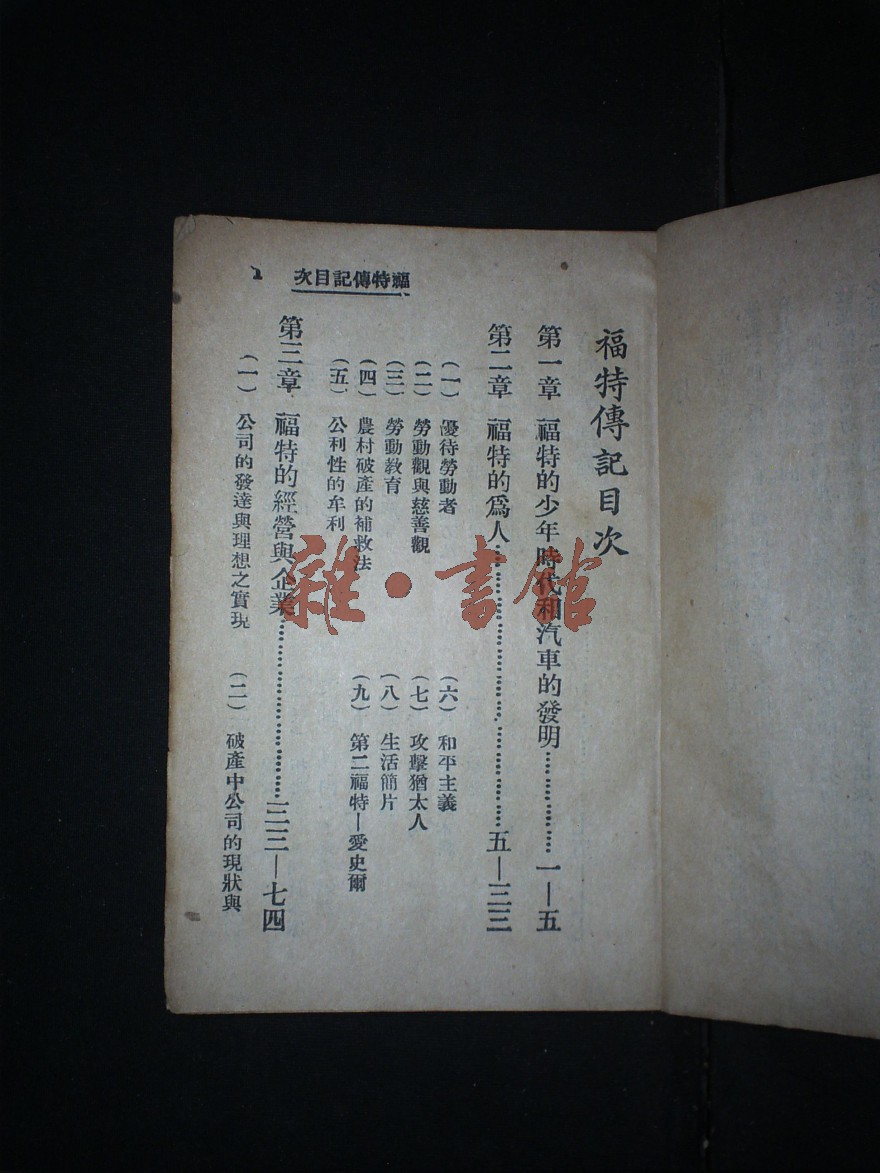 福特傳記目次
1
福特傳記目次
第一章 福特的少年時代和汽車的發明………………一—五
第二章 福特的爲人………………五—三三
(一) 優待勞動者
(二) 勞動觀與慈善觀
(三) 勞動教育
(四) 農村破產的補救法
(五) 公利性的牟利
(六) 和平主義
(七) 攻擊猶太人
(八) 生活簡片
(九) 第二福特—愛史爾
第三章 福特的經營與企業………………三三—七四
(一) 公司的發達與理想之實現
(二) 破產中公司的現狀與
雜·書館